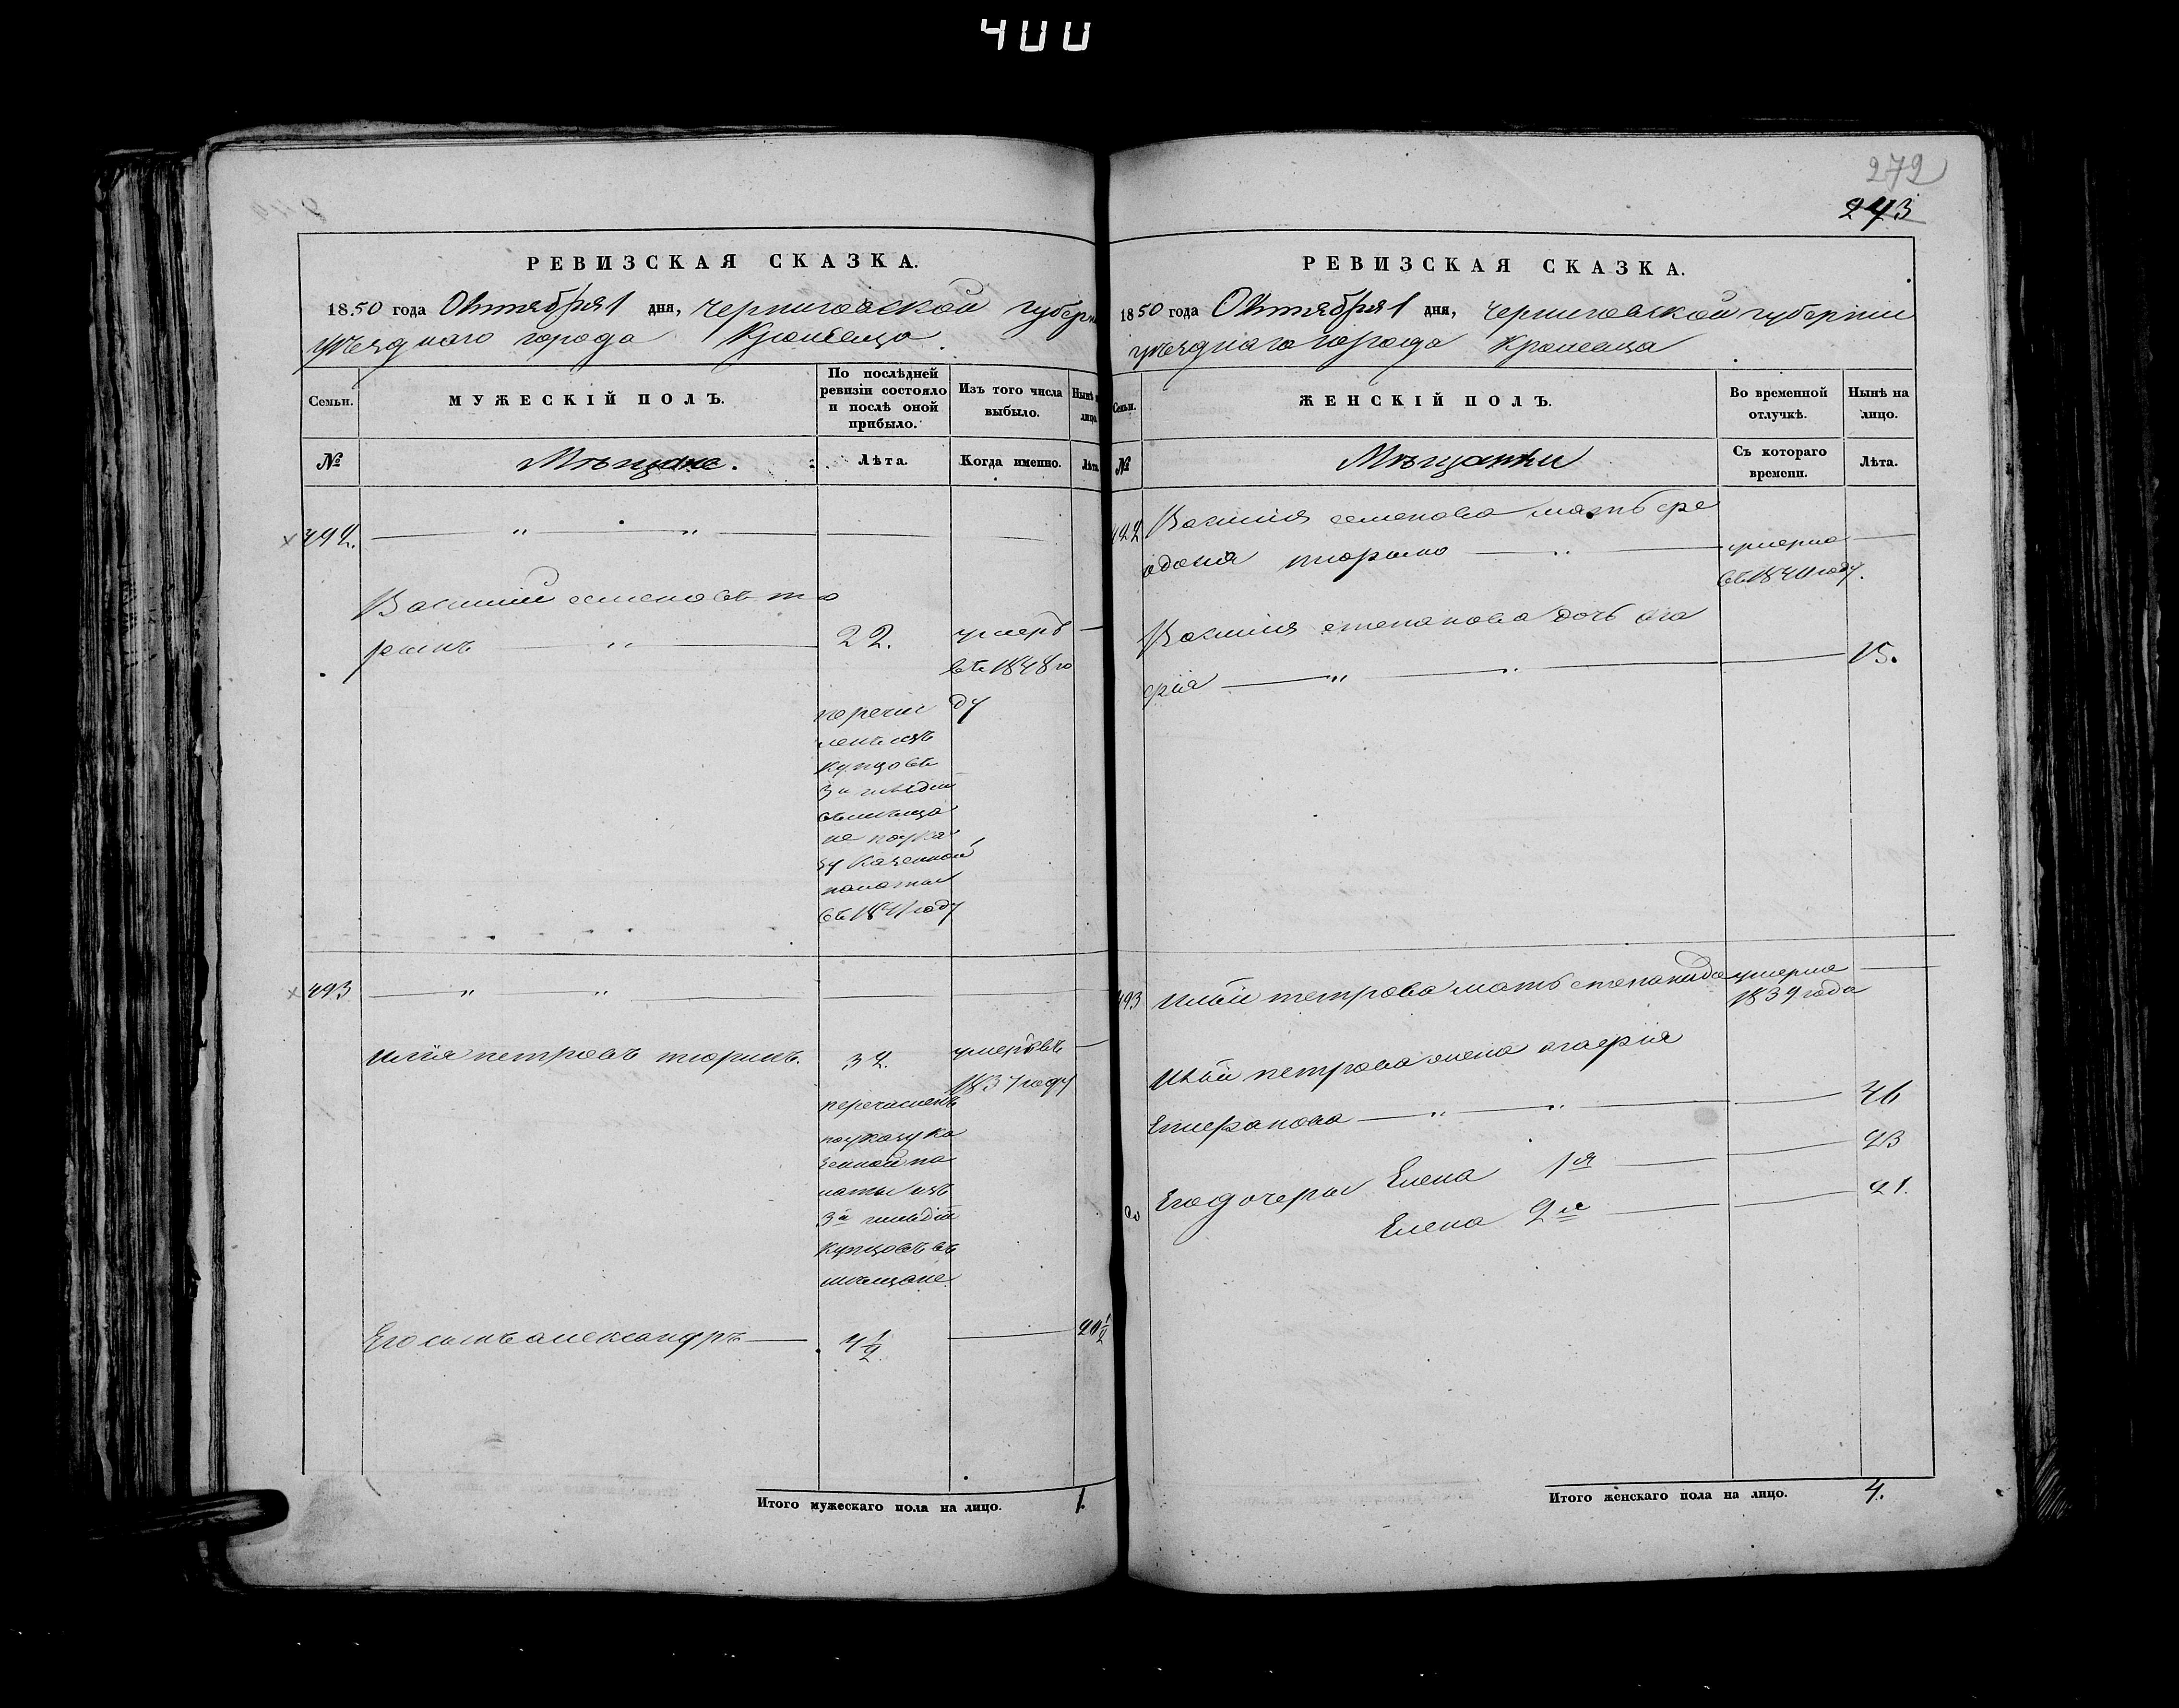 400
272
243
РЕВИЗСКАЯ СКАЗКА.
1850 года Октября 1 дня, Черниговской губерн
уѣзднаго города Кролевца
Семьи.
МУЖЕСКІЙ ПОЛЪ.
По послѣдней ревизіи состояло и послѣ оной прибыло.
Изъ того числа выбыло.
Нынѣ н лицо.
№
Мѣщане.
Лѣта.
Когда именно.
Лѣта
492.
Василій семеновъ тю
ринъ
22.
умеръ
въ 1848 го
ду
перечи
ленъ изъ
купцовъ
3й гильдіи
въ мѣща
не по ука
зу Казенной
палаты
въ 1841 году
493
илія петровъ тюринъ.
32.
умеръ въ
1837 году
перечисленъ
по указу ка
зенной па
латы изъ
3й гильдіи
купцовъ въ
мѣщане
Его сынъ александръ
4 1/2
20 1/2
Итого мужескаго пола на лицо.
1.
РЕВИЗСКАЯ СКАЗКА.
1850 года Октября 1 дня, Черниговской губерніи
уѣзднаго города Кролевца
Семьи.
ЖЕНСКІЙ ПОЛЪ.
Во временной отлучкѣ.
Нынѣ на лицо.
№
Мѣщанки
Съ котораго времени.
Лѣта.
492
Василія семенова мать фе
одосія
умерла
году.
Василія степанова дочь ага
фія
15.
493
Иліи петрова мать степанида
умерла
1839 года
Иліи петрова жена агафія
46
Его дочери Елена 1я
23
Елена 2я
21.
Итого женскаго пола на лицо.
4.